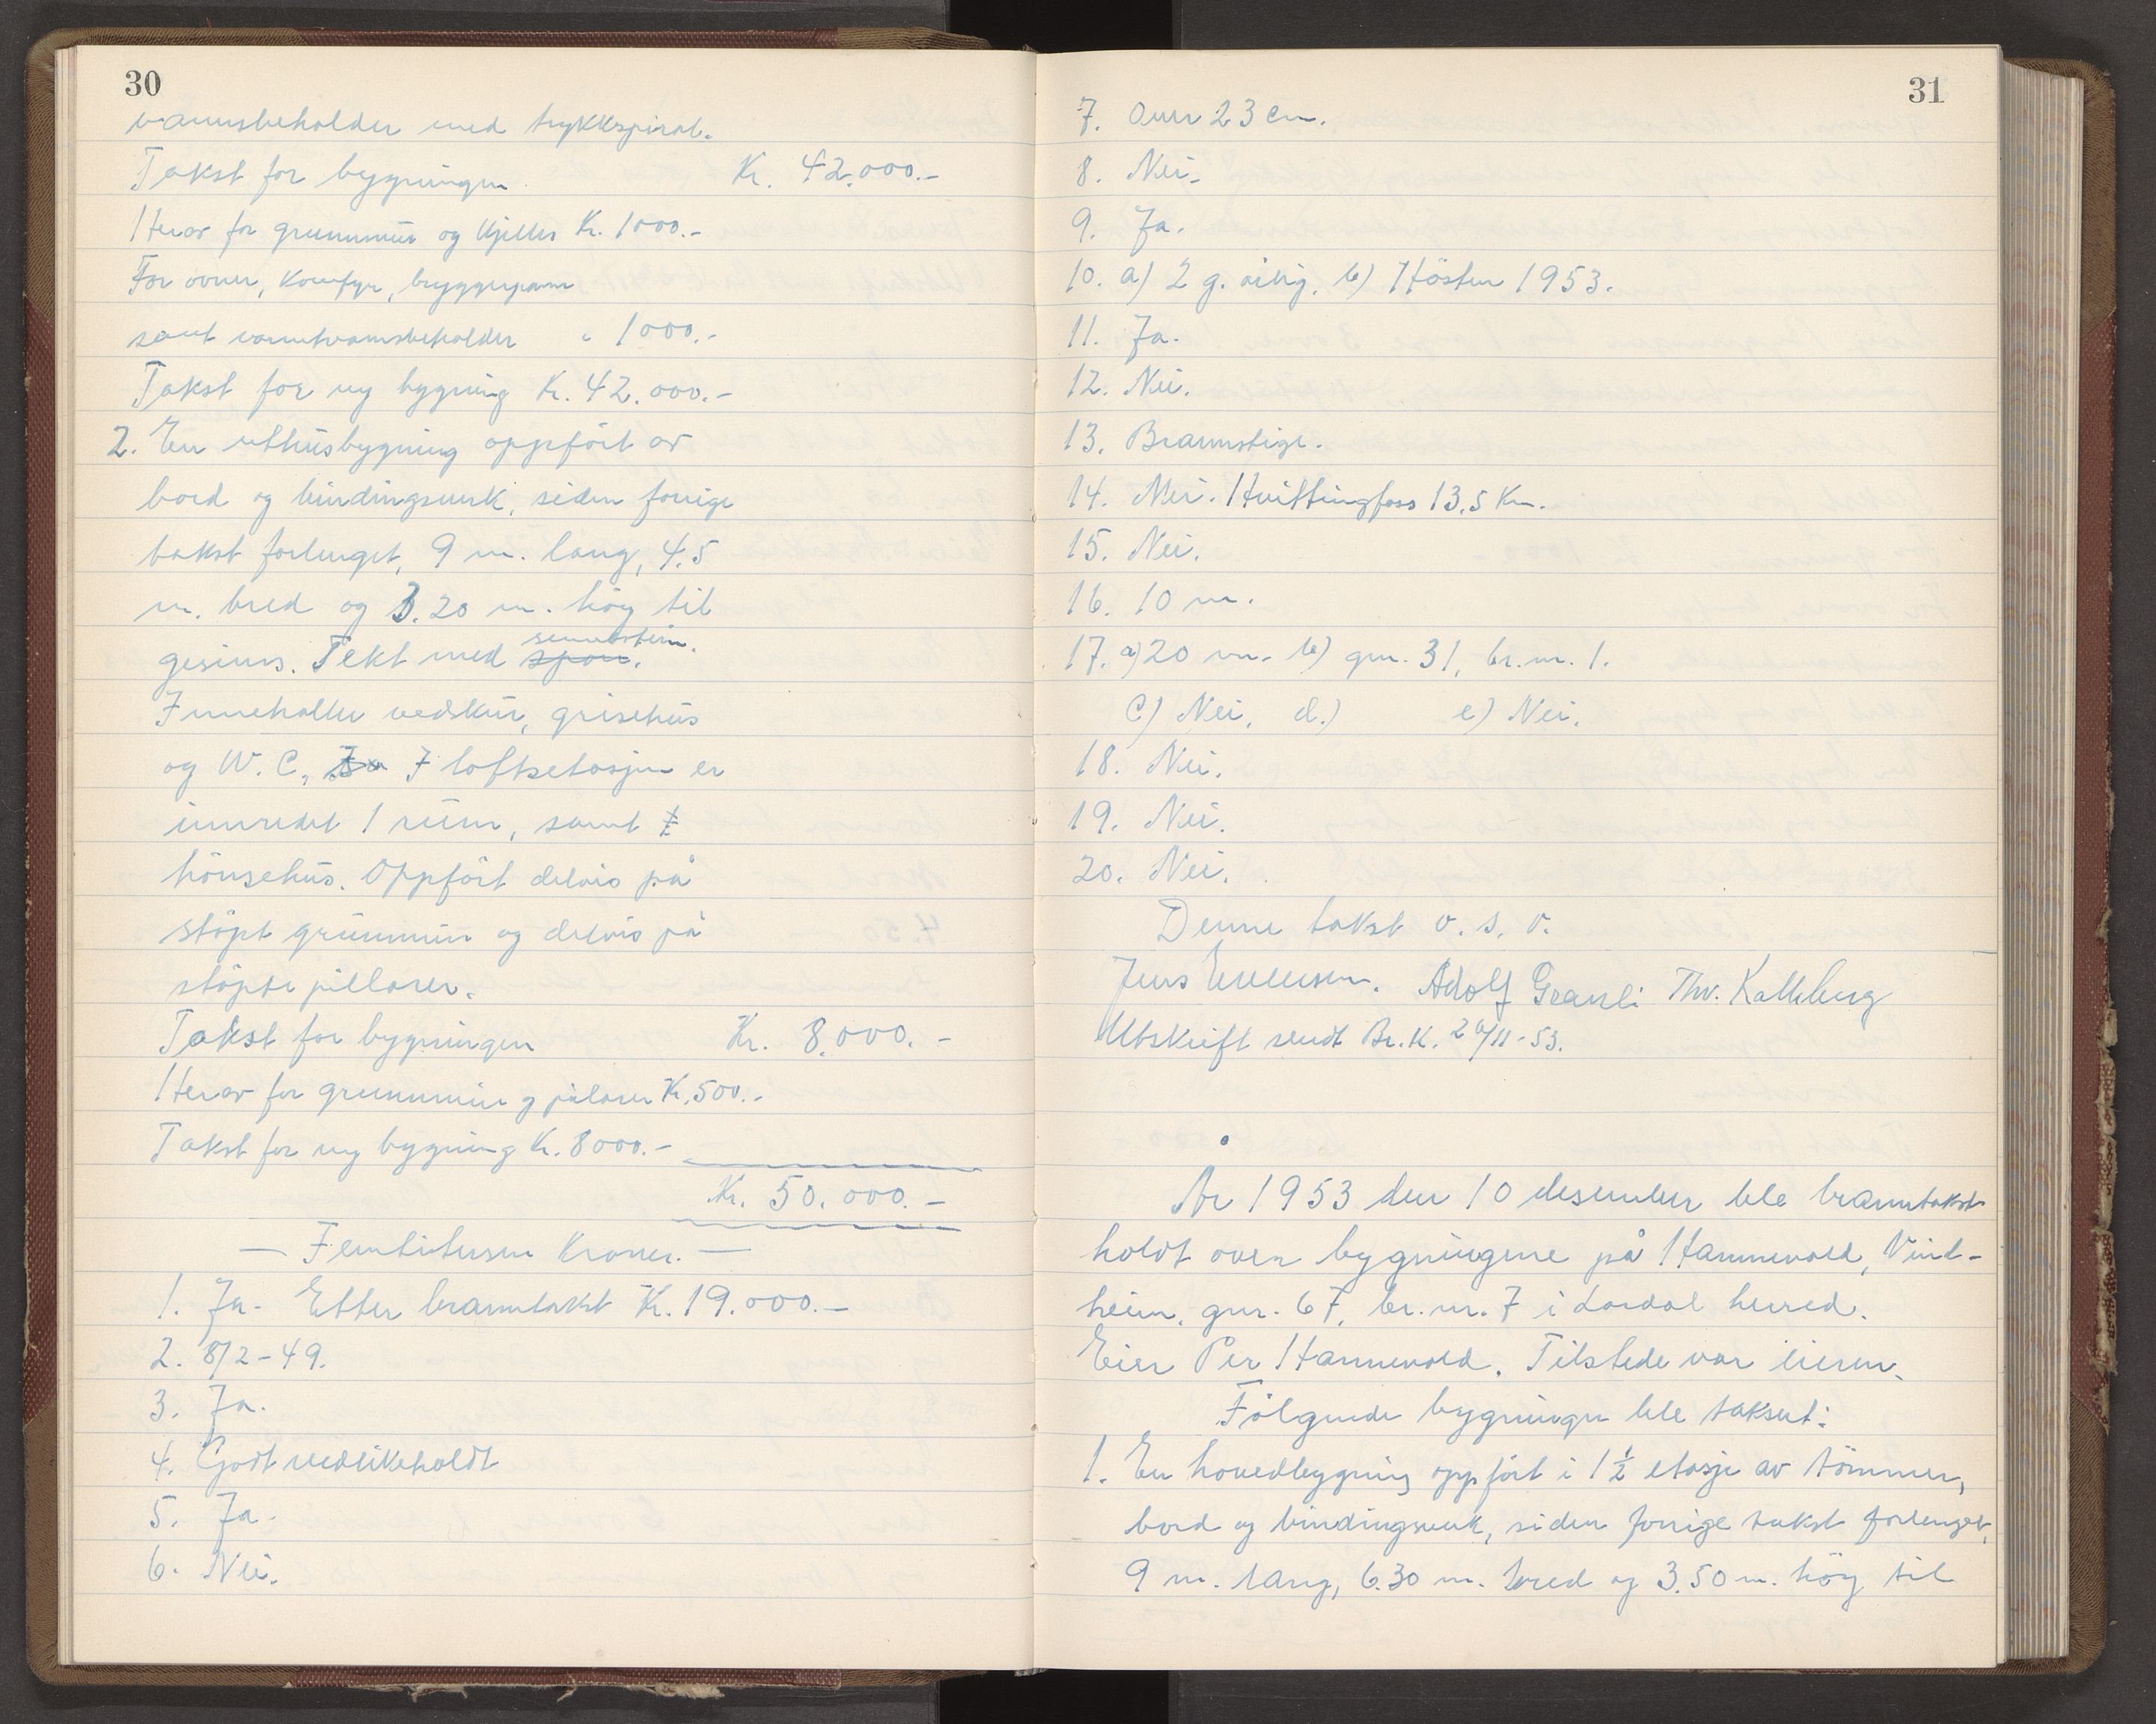 30
vannsbeholder med trykkspiral.
Takst for bygningen Kr. 42.000.-
Herav for grunnmur og kjeller Kr. 1000.-
For ovner, komfyr, bryggepanne
samt varmtvannsbeholder " 1000.-
Takst for ny bygning Kr. 42.000.-
2. En uthusbygning oppført av
bord og bindingsverk, siden forrige
takst forlenget, 9 m. lang, 4.5
m. bred og 3.20 m. høy til
sementstein.
gesims. Tekt med spon.
Inneholder vedskur, grisehus
og W.C., I loftsetasjen er
innredet 1 rum, samt
hönsehus. Oppfört delvis på
stöpt grunnmur og delvis på
stöpte pillarer.
Takst for bygningen Kr. 8.000.-
Herav for grunnmur og pilarer Kr. 500.-
Takst for ny bygning Kr. 8000.-
Kr. 50.000.-
— Femtitusen Kroner. —
1. Ja. Etter branntakst Kr. 19.000.-
2. 8/2-49.
3. Ja.
4. Godt vedlikeholdt
5. Ja.
6. Nei.
31
7. Over 23 cm.
8. Nei.
9. Ja.
10. a) 2 g. årlig. b) Hösten 1953.
11. Ja.
12. Nei.
13. Brannstige.
14. Nei. Hvittingfoss 13,5 Km.
15. Nei.
16. 10 m.
17. a) 20 m. b) gnr. 31, br.nr. 1.
c) Nei. d.) e) Nei.
18. Nei.
19. Nei.
20. Nei.
Denne takst o. s. v.
Jens Evensen. Adolf Granli Thv. Kalleberg
Utskrift sendt Br.K. 20/11-53.
År 1953 den 10 desember ble branntakst
holdt over bygningene på Hannevold, Vind-
heim, gnr. 67, br.nr. 7 i Lardal herred.
Eier Per Hannevold. Tilstede var eieren.
Fölgende bygninger ble taksert:
1. En hovedbygning oppfört i 1 ½ etasje av tömmer,
bord og bindingsverk, siden forrige takst forlenget,
9 m. lang, 6.30 m. bred og 3.50 m. höy til